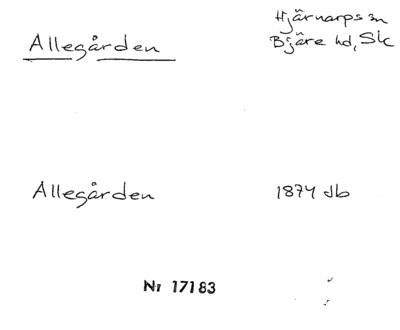 Allegården
Hjärnarps sn
Bjäre hd, Sk
Allegården 1874 db
Nr 17183